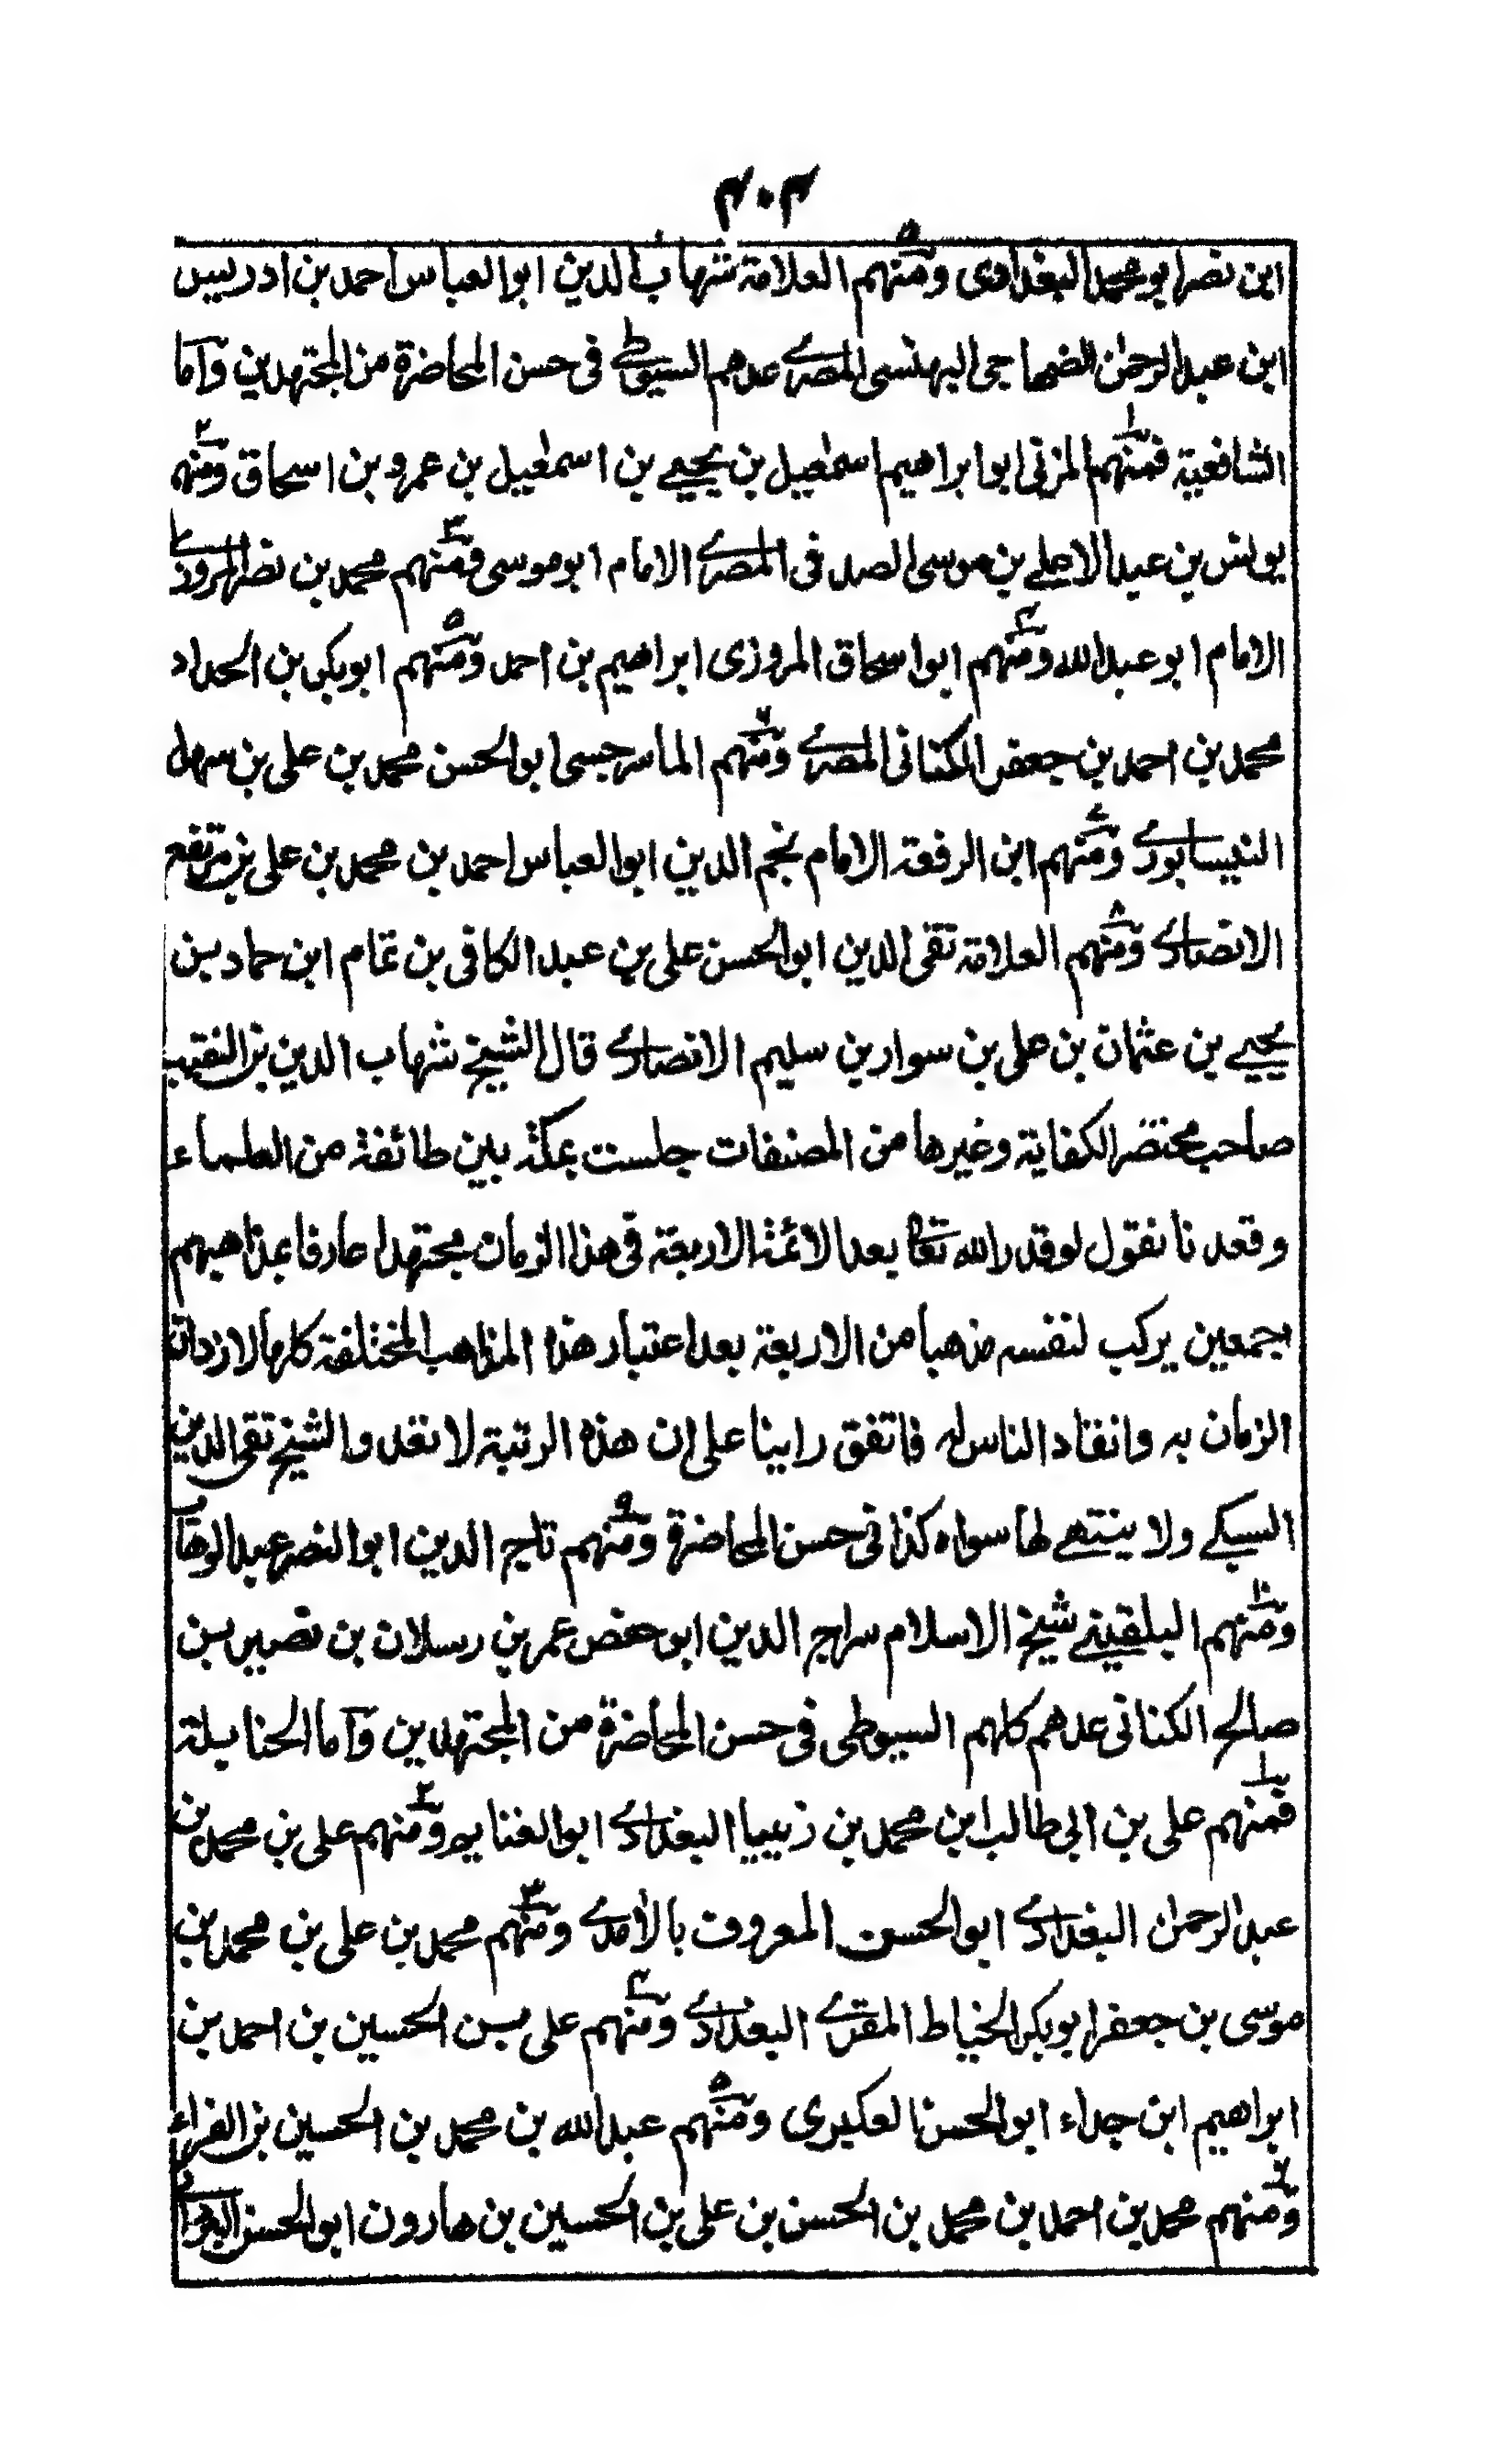 ۴۰۴
ابن نصر ابو محمد البغدادی ومنهم۵ العلامة شهاب الدین ابو العباس احمد بن ادریس
ابن عبد الرحمٰن الصنهاجی البهنسی المصرے عدهم السیوطے فی حسن المحاضرة من المجتهدین وآما
الشافعیة فمنهم۱ المزنی ابو ابراهیم اسمٰعیل بن یحییے بن اسمٰعیل بن عمرو بن اسحاق ومنهم۲
یونس بن عبد الاعلے بن موسی الصدفی المصرے الامام ابو موسی ومنهم۳ محمد بن نصر المروزے
الامام ابو عبد الله ومنهم۴ ابو اسحاق المروزی ابراهیم بن احمد ومنهم۵ ابوبکر بن الحداد
محمد بن احمد بن جعفر الکنانی المصرے ومنهم۶ الماسرجسی ابو الحسن محمد بن علی بن سهل
النیسابورے ومنهم۷ ابن الرفعة الامام نجم الدین ابو العباس احمد بن محمد بن علی بن مرتفع
الانصارے ومنهم۸ العلامة تقی الدین ابو الحسن علی بن عبد الکافی بن تمام ابن حماد بن
یحییے بن عثمان بن علی بن سوار بن سلیم الانصارے قال الشیخ شهاب الدین بن النقیب
صاحب مختصر الکفایة وغیرها من المصنفات جلست بمکة بین طائفة من العلماء
وقعدنا نقول لو قدر الله تعا بعد الائمة الاربعة فی هذا الزمان مجتهدا عارفا بمذاهبهم
اجمعین یرکب لنفسه مذهبا من الاربعة بعد اعتبار هذه المذاهب المختلفة کلها لازدان
الزمان به وانقاد الناس له فاتفق راینا علی ان هذه الرتبة لا تعدو الشیخ تقی الدین
السبکے ولا ینتهے لها سواه کذا فی حسن المحاضرة ومنهم۹ تاج الدین ابو النصر عبد الوهاب
ومنهم۱۰ البلقینے شیخ الاسلام سراج الدین ابو حفص عمر بن رسلان بن نصیر بن
صالح الکنانی عدهم کلهم السیوطی فی حسن المحاضرة من المجتهدین وآما الحنابلة
فمنهم۱ علی بن ابی طالب ابن محمد بن زبیبا البغدادے ابو الغنایم ومنهم۲ علی بن محمد بن
عبد الرحمٰن البغدادے ابو الحسن المعروف بالاٰمدے ومنهم۳ محمد بن علی بن محمد بن
موسی بن جعفر ابوبکر الخیاط المقرے البغدادے ومنهم۴ علی بن الحسین بن احمد بن
ابراهیم ابن جداء ابو الحسن العکبری ومنهم۵ عبد الله بن محمد بن الحسین بن الفراء
ومنهم۶ محمد بن احمد بن محمد بن الحسن بن علی بن الحسین بن هارون ابو الحسن